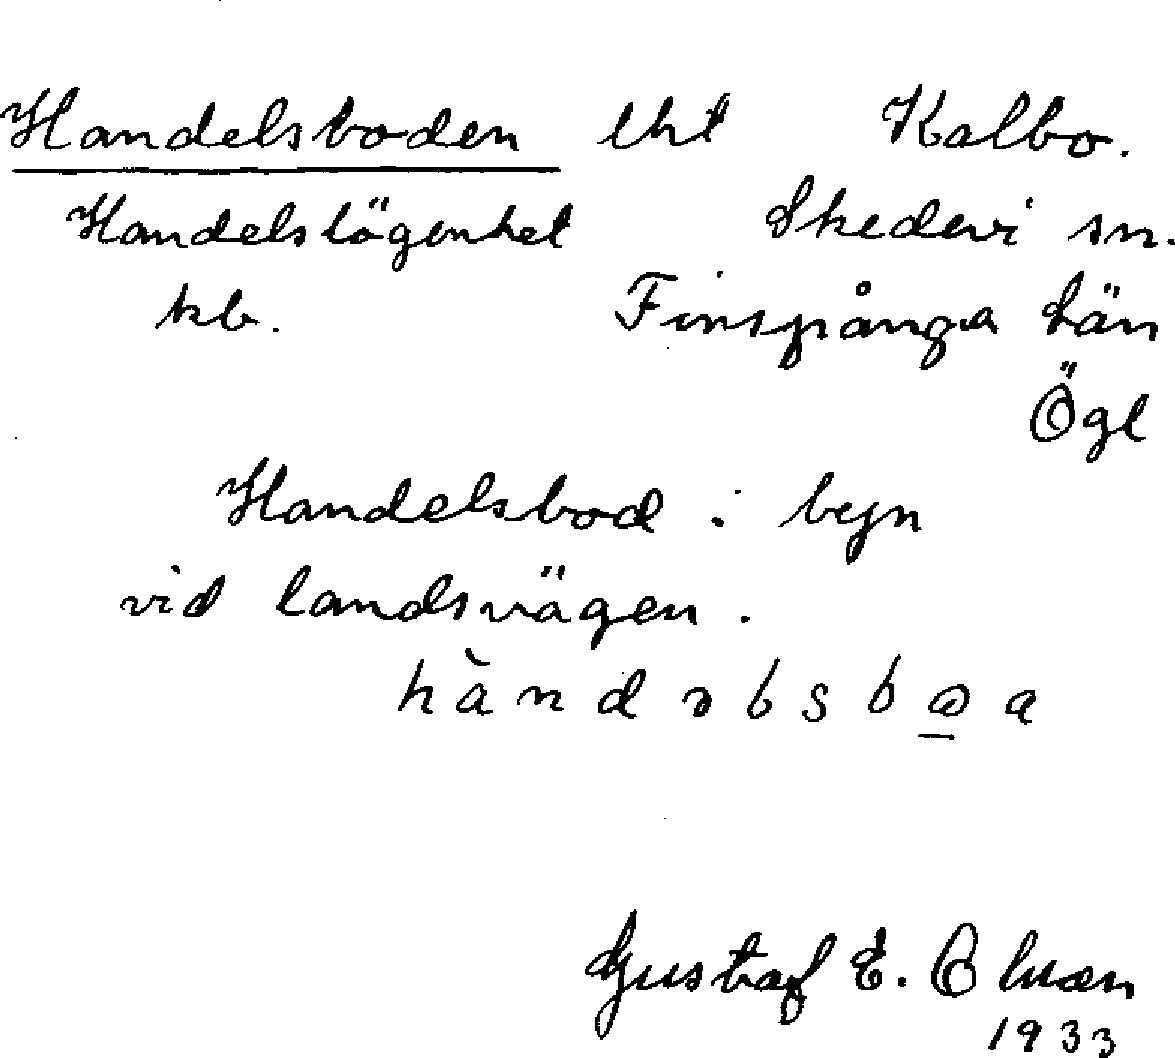 Handelsboden Kalbo.
Handelslägenhet Skedevi sn.
kb. Finspånga län
Ögl
Handelsbod i byn
vid landsvägen.
Gustaf E.
1933